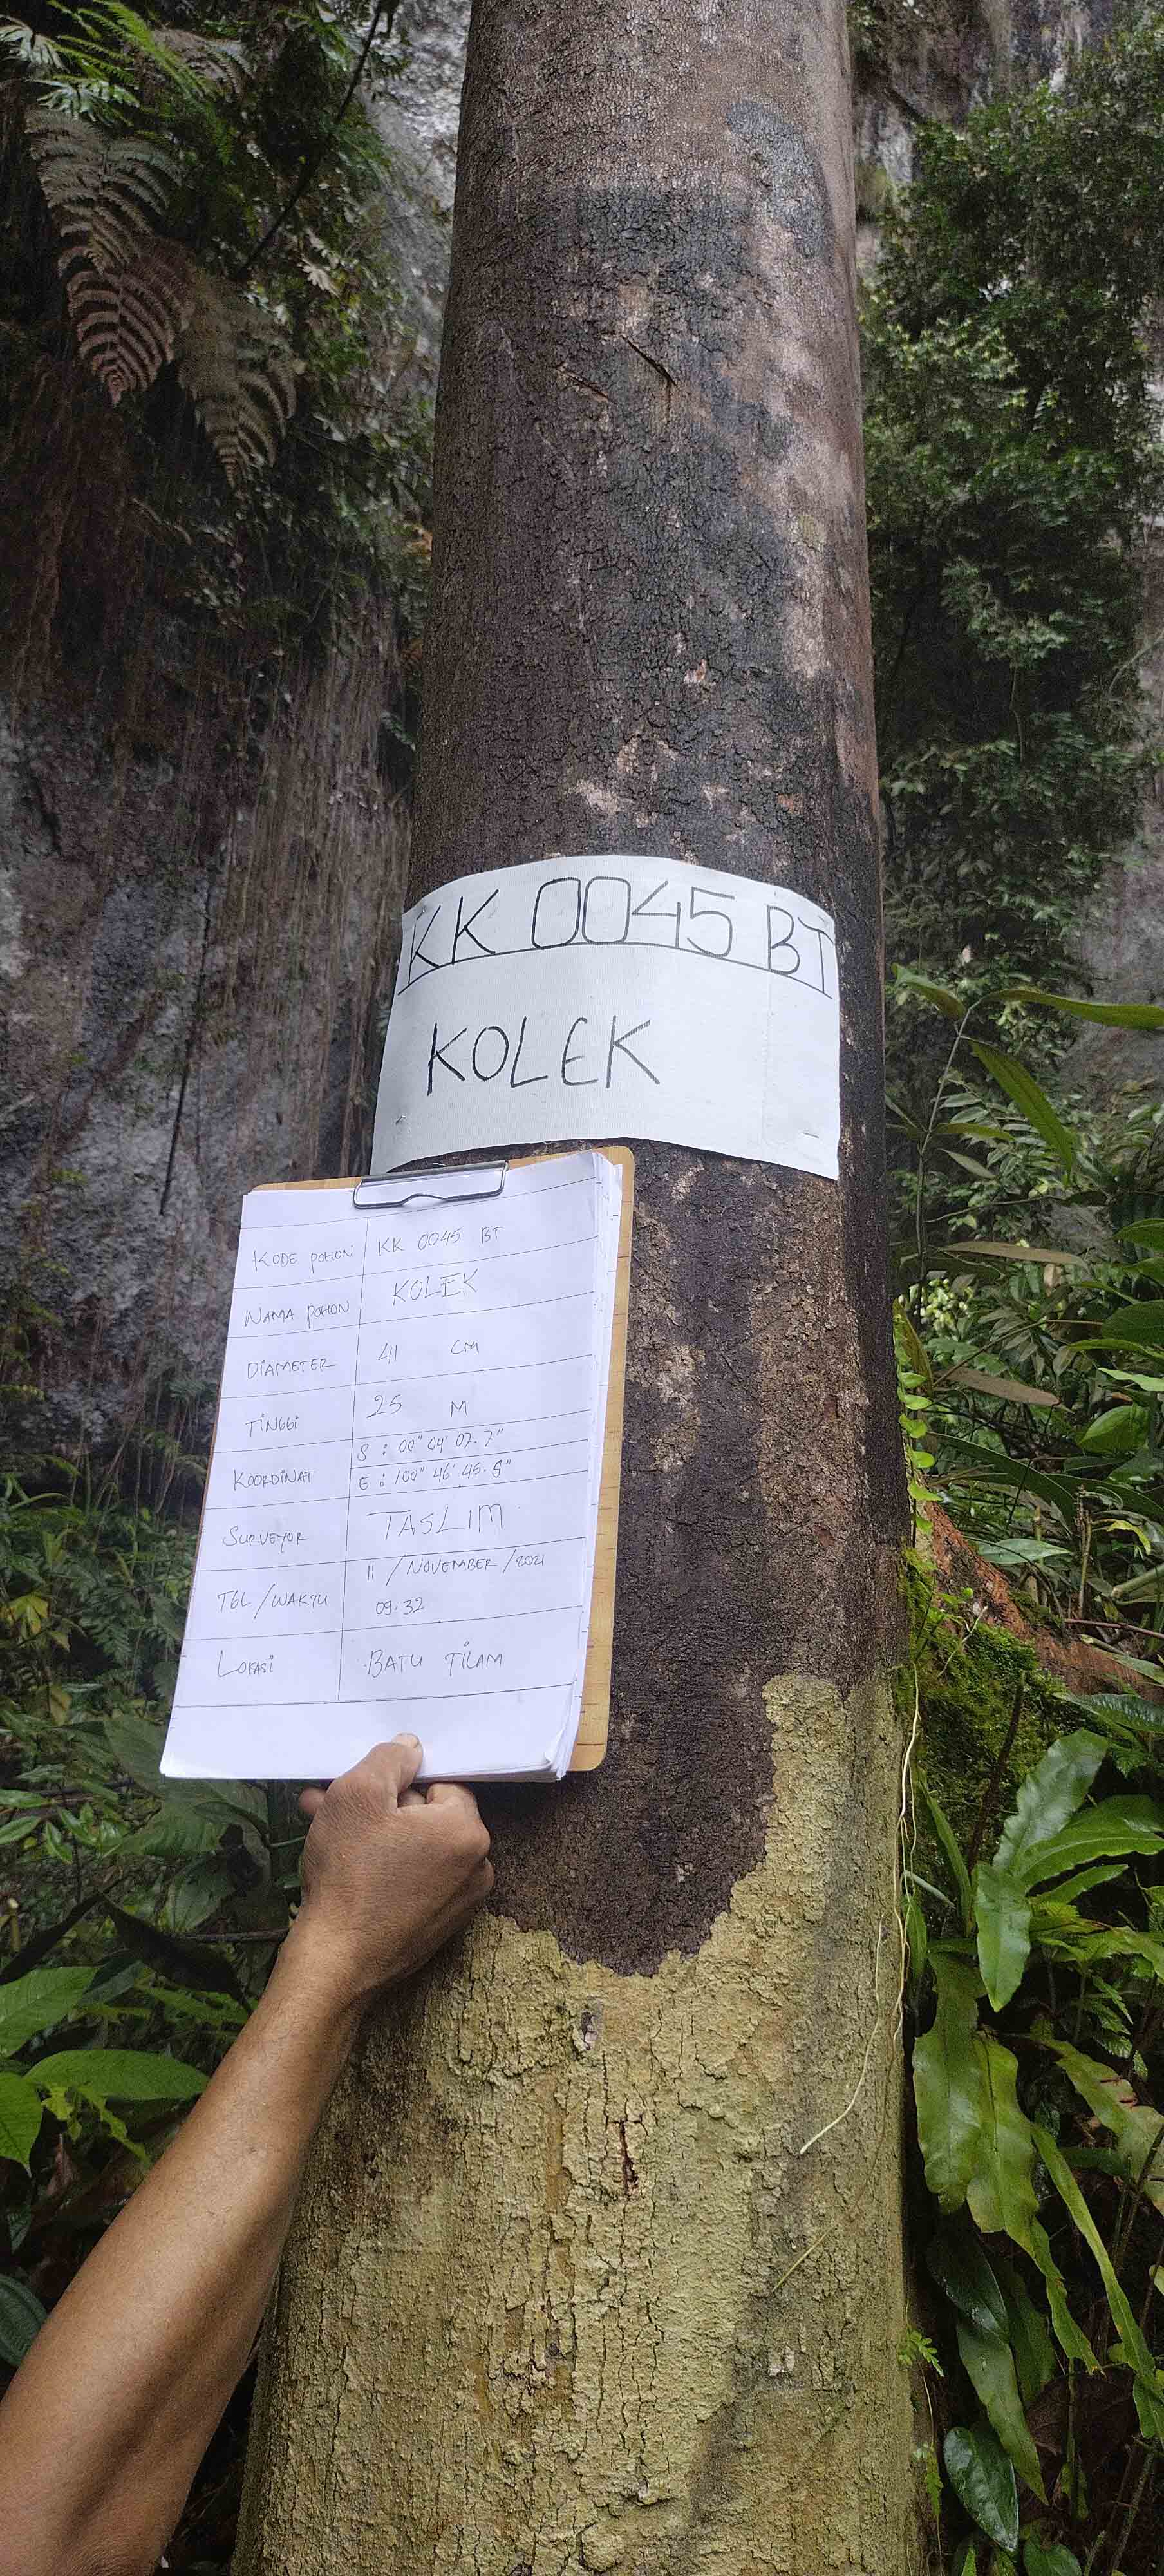 KK 0045 BT
KOLEK
KODE POHON KK 0045 BT
NAMA POHON KOLEK
DIAMETER 41 CM
TINGGI 25 M
KOORDINAT S : 00" 04' 07.7"
E : 100" 46' 45.9"
SURVEYOR TASLIM
TGL/WAKTU 11 / NOVEMBER / 2021
09.32
LOKASI BATU TILAM